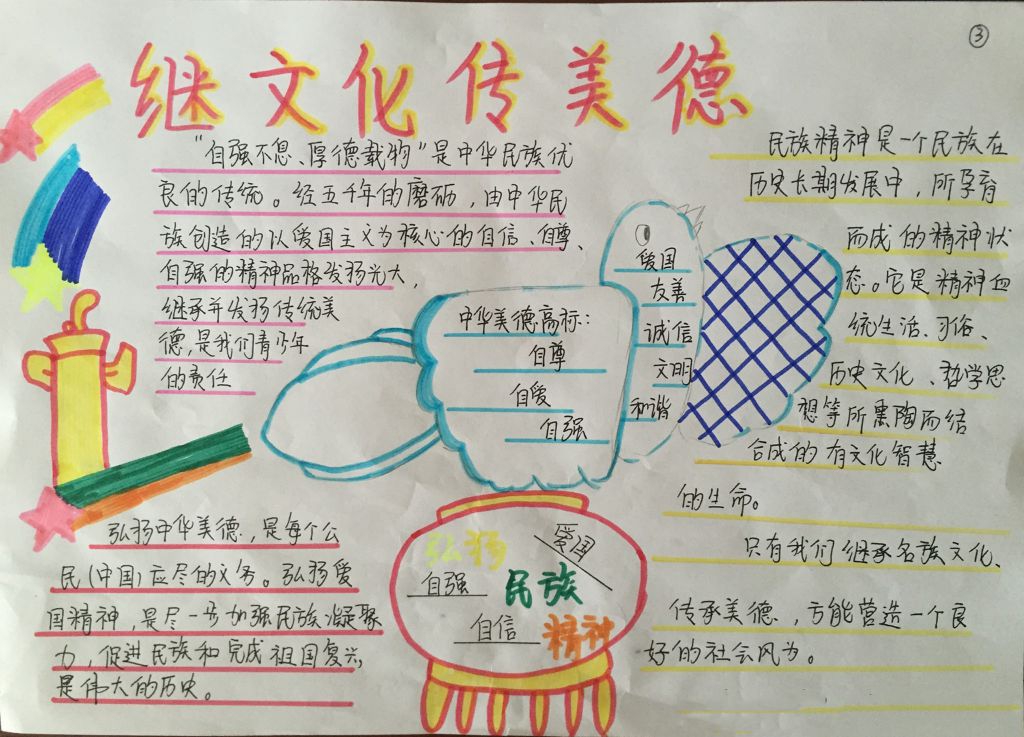 ③
继文化传美德
"自强不息、厚德载物"是中华民族优
良的传统。经五千年的磨砺，由中华民
族创造的以爱国主义为核心的自信、自尊、
自强的精神品格发扬光大，
继承并发扬传统美
德，是我们青少年
的责任
弘扬中华美德，是每个公
民(中国)应尽的义务。弘扬爱
国精神，是尽一步加强民族凝聚
力，促进民族和完成祖国复兴，
是伟大的历史。
中华美德高标：
自尊
自爱
自强
爱国
友善
诚信
文明
和谐
弘扬
爱国
自强
民族
自信
精神
民族精神是一个民族在
历史长期发展中，所孕育
而成的精神状
态。它是精神血
统生活、习俗、
历史文化、哲学思
想等所熏陶而结
合成的有文化智慧
的生命。
只有我们继承名族文化、
传承美德，方能营造一个良
好的社会风为。